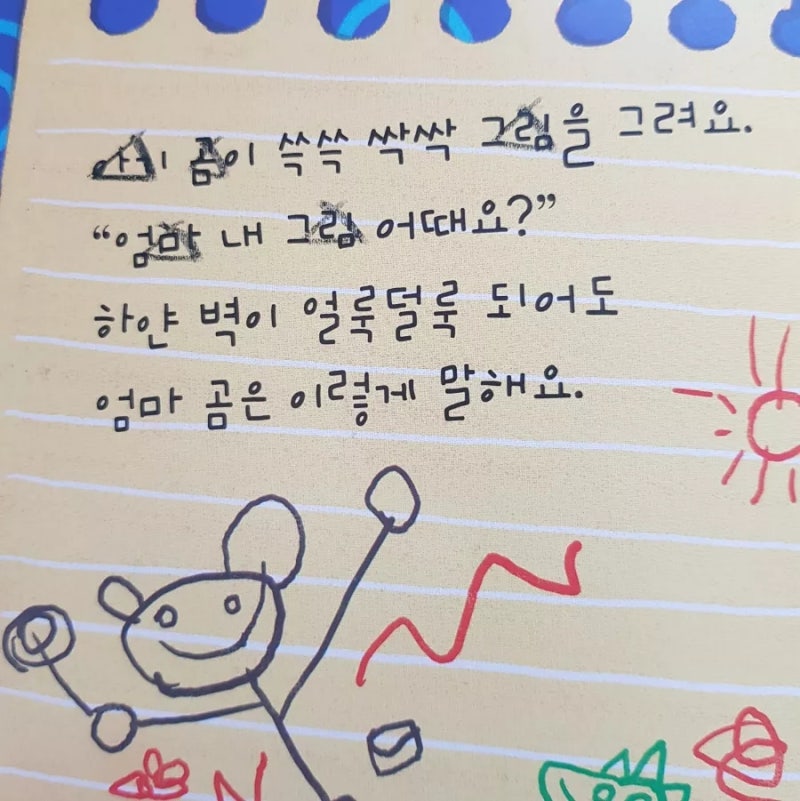 곰이 쓱쓱 싹싹 그림을 그려요.
“엄마 내 그림 어때요?”
하얀 벽이 얼룩덜룩 되어도
엄마 곰은 이렇게 말해요.